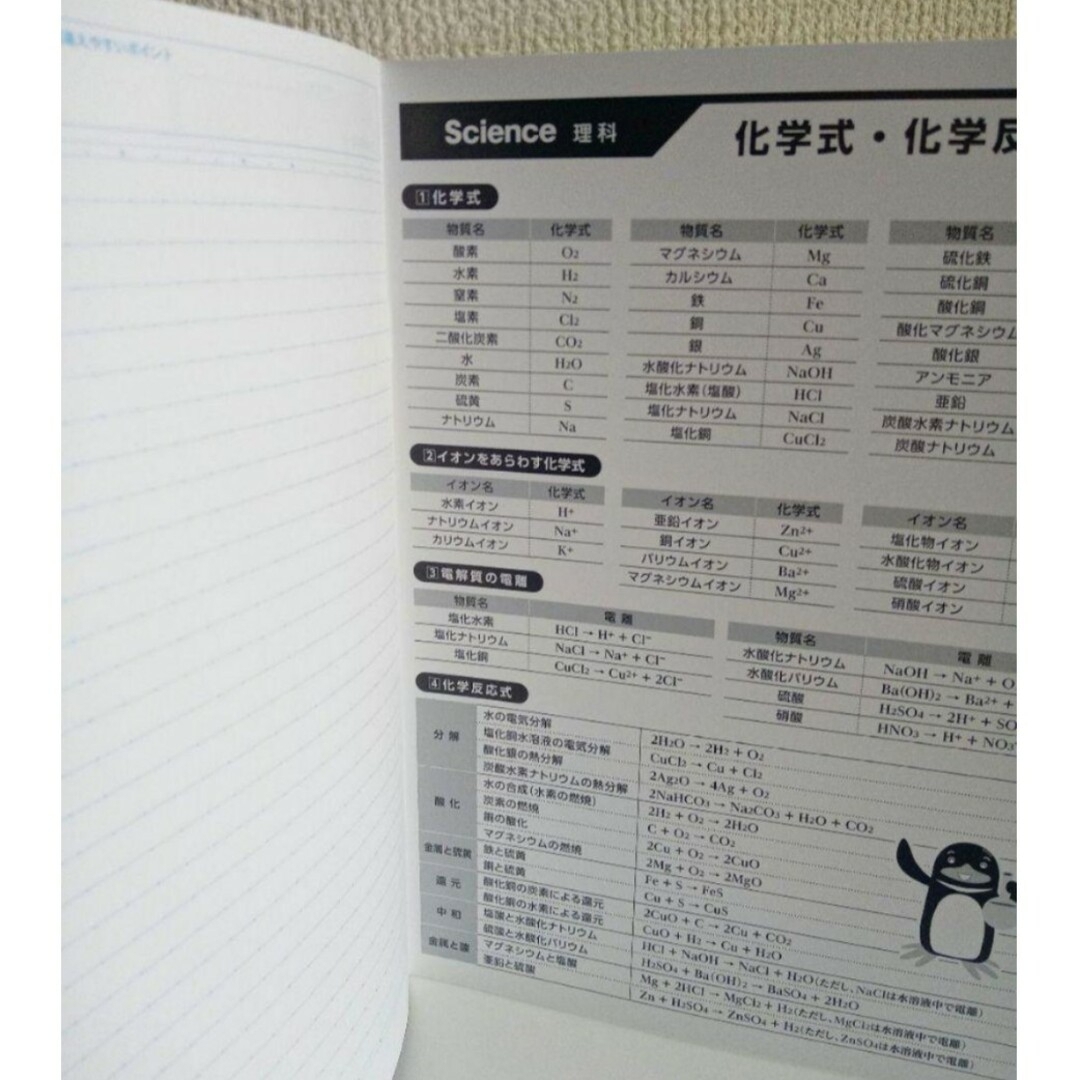 違えやすいポイント
Science 理科
化学式・化学反
1 化学式
物質名 化学式
酸素 O₂
水素 H₂
窒素 N₂
塩素 Cl₂
二酸化炭素 CO₂
水 H₂O
炭素 C
硫黄 S
ナトリウム Na
物質名 化学式
マグネシウム Mg
カルシウム Ca
鉄 Fe
銅 Cu
銀 Ag
水酸化ナトリウム NaOH
塩化水素(塩酸) HCl
塩化ナトリウム NaCl
塩化銅 CuCl₂
物質名
硫化鉄
硫化銅
酸化銅
酸化マグネシウム
酸化銀
アンモニア
亜鉛
炭酸水素ナトリウム
炭酸ナトリウム
2 イオンをあらわす化学式
イオン名 化学式
水素イオン H⁺
ナトリウムイオン Na⁺
カリウムイオン K⁺
イオン名 化学式
亜鉛イオン Zn²⁺
銅イオン Cu²⁺
バリウムイオン Ba²⁺
マグネシウムイオン Mg²⁺
イオン名
塩化物イオン
水酸化物イオン
硫酸イオン
硝酸イオン
3 電解質の電離
物質名 電離
塩化水素 HCl → H⁺ + Cl⁻
塩化ナトリウム NaCl → Na⁺ + Cl⁻
塩化銅 CuCl₂ → Cu²⁺ + 2Cl⁻
物質名 電離
水酸化ナトリウム NaOH → Na⁺ + O
水酸化バリウム Ba(OH)₂ → Ba²⁺ +
硫酸 H₂SO₄ → 2H⁺ + SO
硝酸 HNO₃ → H⁺ + NO₃
4 化学反応式
分解
水の電気分解 2H₂O → 2H₂ + O₂
塩化銅水溶液の電気分解 CuCl₂ → Cu + Cl₂
酸化銀の熱分解 2Ag₂O → 4Ag + O₂
炭酸水素ナトリウムの熱分解 2NaHCO₃ → Na₂CO₃ + H₂O + CO₂
酸化
水の合成(水素の燃焼) 2H₂ + O₂ → 2H₂O
炭素の燃焼 C + O₂ → CO₂
銅の酸化 2Cu + O₂ → 2CuO
マグネシウムの燃焼 2Mg + O₂ → 2MgO
金属と硫黄
鉄と硫黄 Fe + S → FeS
銅と硫黄 Cu + S → CuS
還元
酸化銅の炭素による還元 2CuO + C → 2Cu + CO₂
酸化銅の水素による還元 CuO + H₂ → Cu + H₂O
中和
塩酸と水酸化ナトリウム HCl + NaOH → NaCl + H₂O(ただし、NaClは水溶液中で電離)
硫酸と水酸化バリウム H₂SO₄ + Ba(OH)₂ → BaSO₄ + 2H₂O
金属と酸
マグネシウムと塩酸 Mg + 2HCl → MgCl₂ + H₂(ただし、MgCl₂は水溶液中で電離)
亜鉛と硫酸 Zn + H₂SO₄ → ZnSO₄ + H₂(ただし、ZnSO₄は水溶液中で電離)